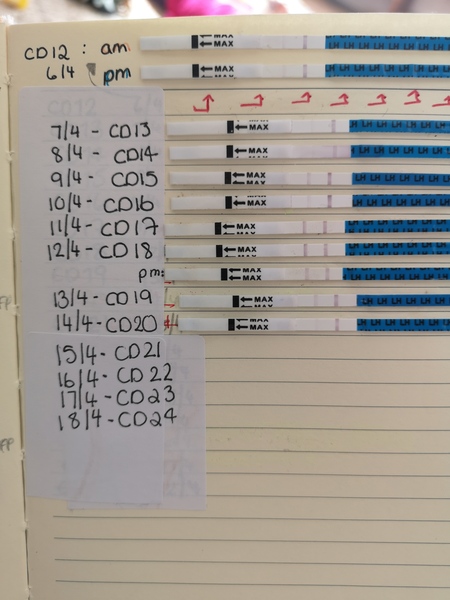 CD12 : am
← MAX
← MAX
6/4 pm
← MAX
7/4 - CD13
← MAX
8/4 - CD14
← MAX
9/4 - CD15
← MAX
10/4 - CD16
← MAX
11/4 - CD17
← MAX
12/4 - CD18
← MAX
pm:
← MAX
13/4 - CD19
← MAX
14/4 - CD20
← MAX
15/4 - CD21
16/4 - CD22
17/4 - CD23
18/4 - CD24
LH LH LH LH LH